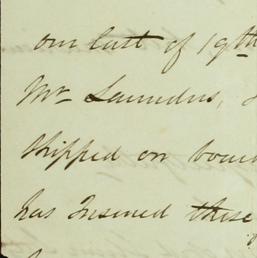 our last of 19th
Mr Saunders,
shipped on boa
has Insured these